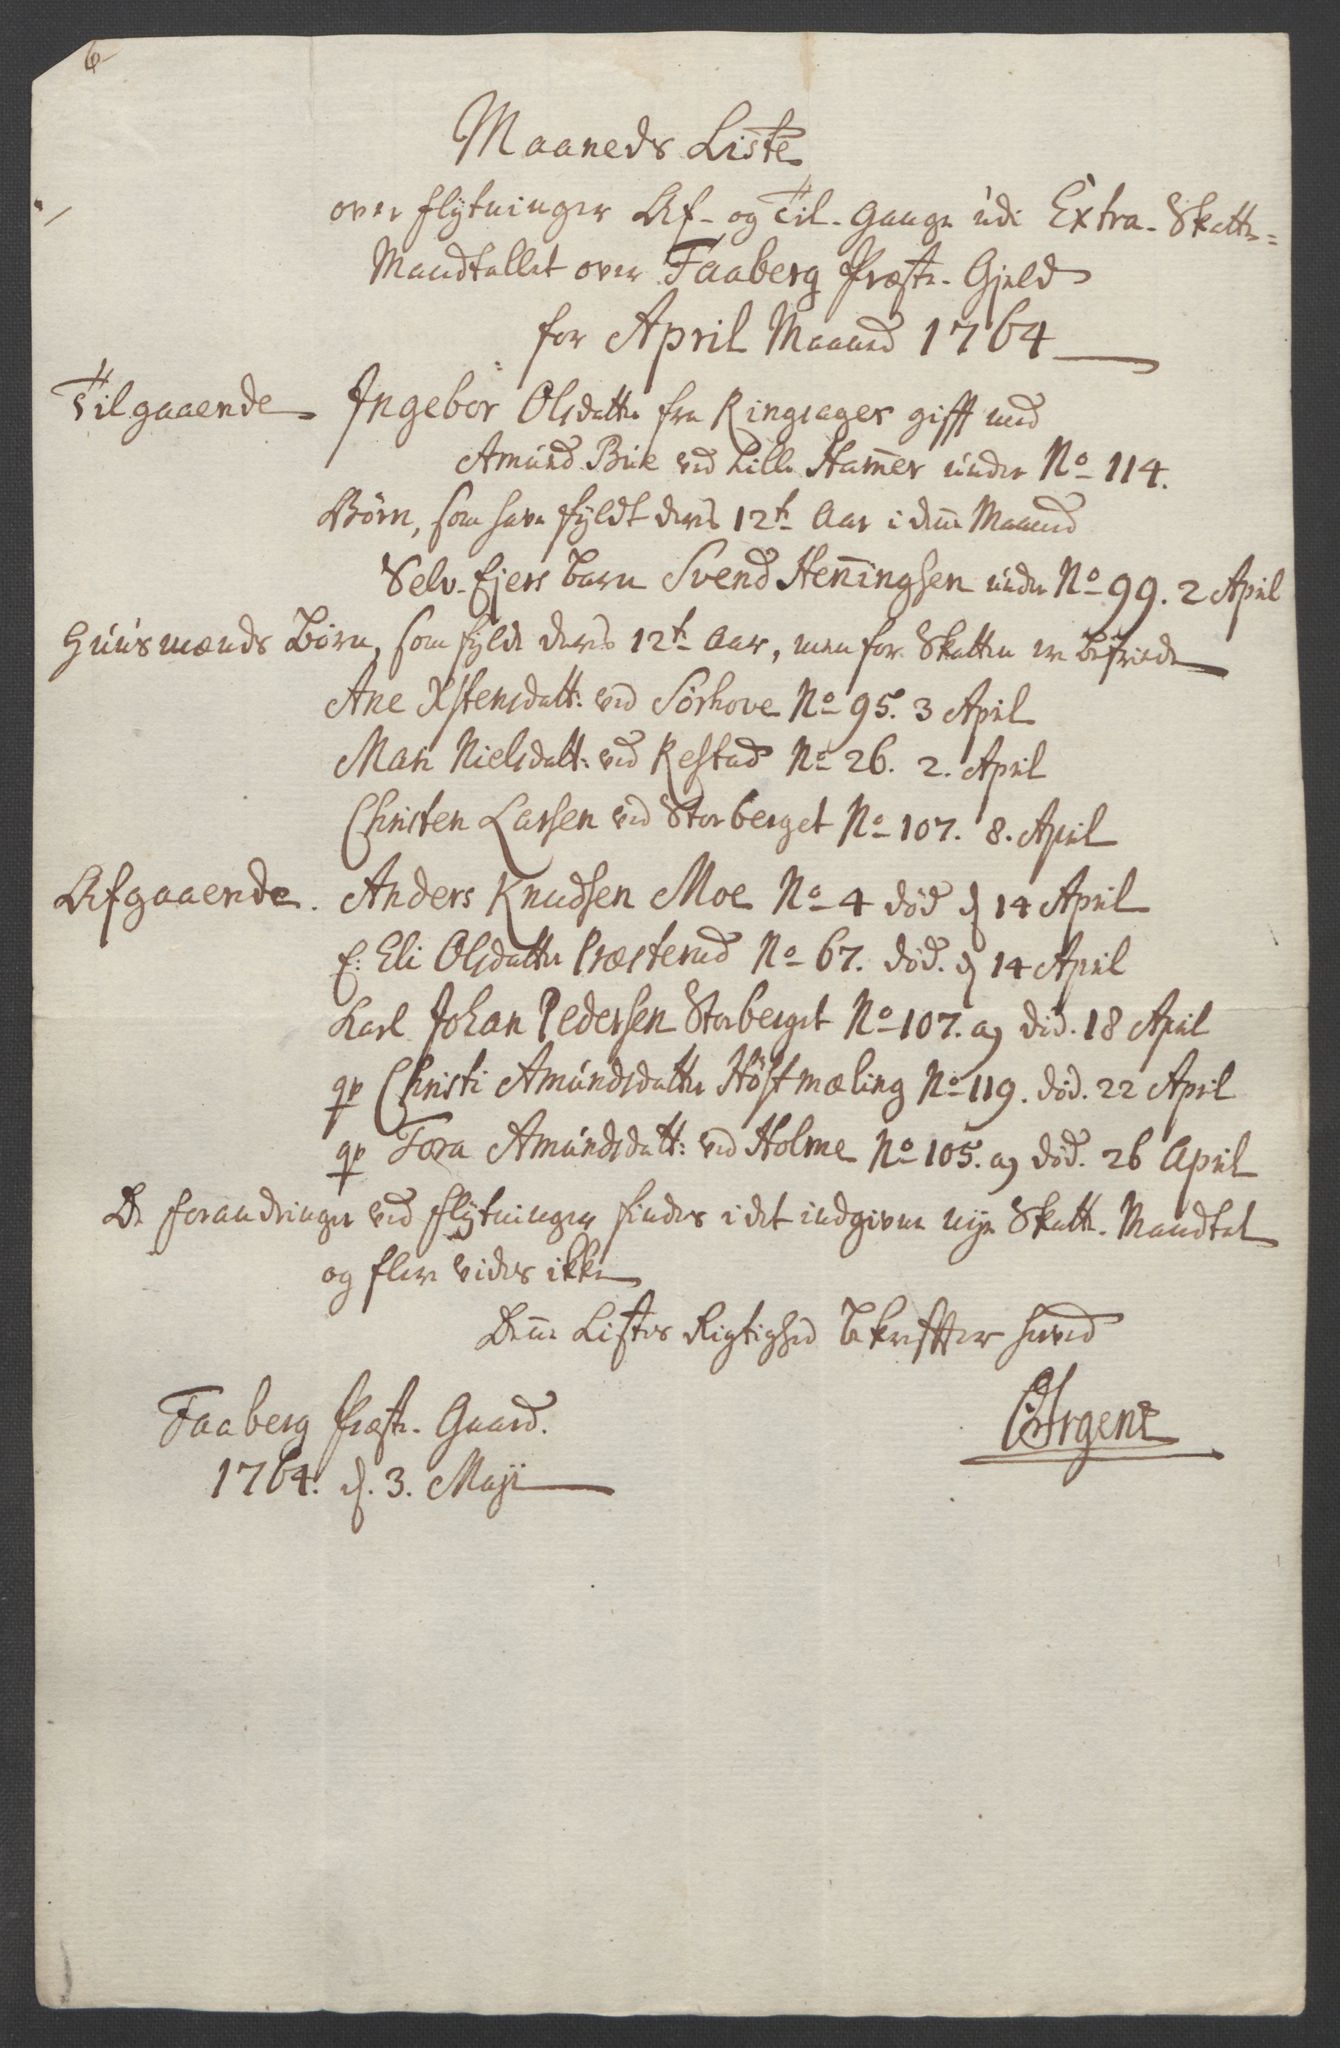 6
Maaneds Liste
over flytninger Af- og Til-Gange udi Extra-Skatte=
Mandtallet over Faaberg Præste-Gjeld
for April Maaned 1764
Tilgaaende Ingebor Olsdatter fra Ringsager gifft med
Amund Bue ved Lille Hamer under No 114.
Børn, som have fyldt deres 12te Aar i denne Maaned
Selv-Ejers Barn Svend Henningsen under No 99. 2 April
Huusmænds Børn, som fyldt deres 12te Aar, men for Skatten er befriede
Ane Xstensdatt: ved Sørhove No 95. 3 April
Mari Nielsdatt: ved Restad No 26. 2. April
Christen Larsen ved Storberget No 107. 8. April
Afgaaende. Anders Knudsen Moe No 4 død d 14 April
E: Eli Olsdatter Præsterud No 67. død. d 14 April
Karl Johan Pedersen Storberget No 107. a) død. 18 April
qp Christi Amundsdatter Høstmæling No 119. død. 22 April
qp Tora Amundsdatt: ved Holme No 105. a) død. 26 April
De forandringer ved flytninger findes i det indgivne nye Skatte-Mandtal
og flere vides ikke
Denne Listes Rigtighed bekreffter herved
Faaberg Præste-Gaard.
1764. d. 3. Maji